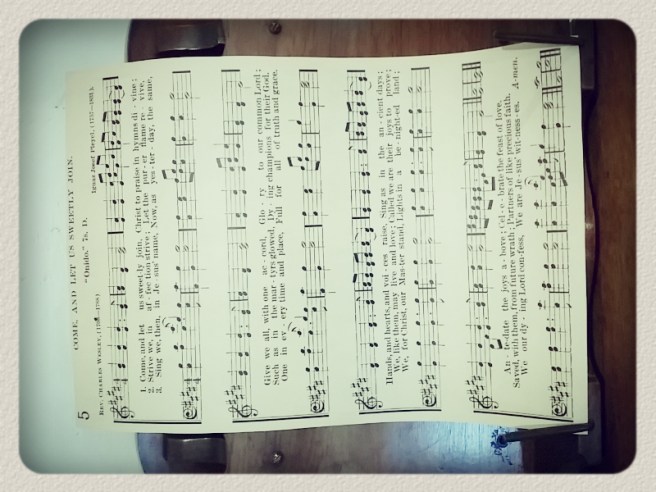 5
COME AND LET US SWEETLY JOIN.
"Guido. 7s. D.
REV. CHARLES WESLEY,
Ignaz Josef Pleyel, (1757–1831).
1. Come, and let us sweet-ly join, Christ to praise in hymns di - vine;
2. Strive we, in af - fec - tion strive; Let the pur - er flame re - vive,
3. Sing we, then, in Je - sus' name, Now, as yes - ter - day, the same,
Give we all, with one ac - cord, Glo - ry to our common Lord;
Such as in the mar - tyrs glowed, Dy - ing champions for their God.
One in ev - ery time and place, Full for all of truth and grace.
Hands, and hearts, and voi - ces raise, Sing as in the an - cient days;
We, like them, may live and love; Called we are their joys to prove;
We, for Christ, our Mas-ter stand, Lights in a be - night-ed land;
An - te-date the joys a - bove; Cel - e - brate the feast of love.
Saved, with them, from future wrath; Partners of like precious faith.
We our dy - ing Lord con-fess, We are Je-sus' wit-ness-es. A-men.